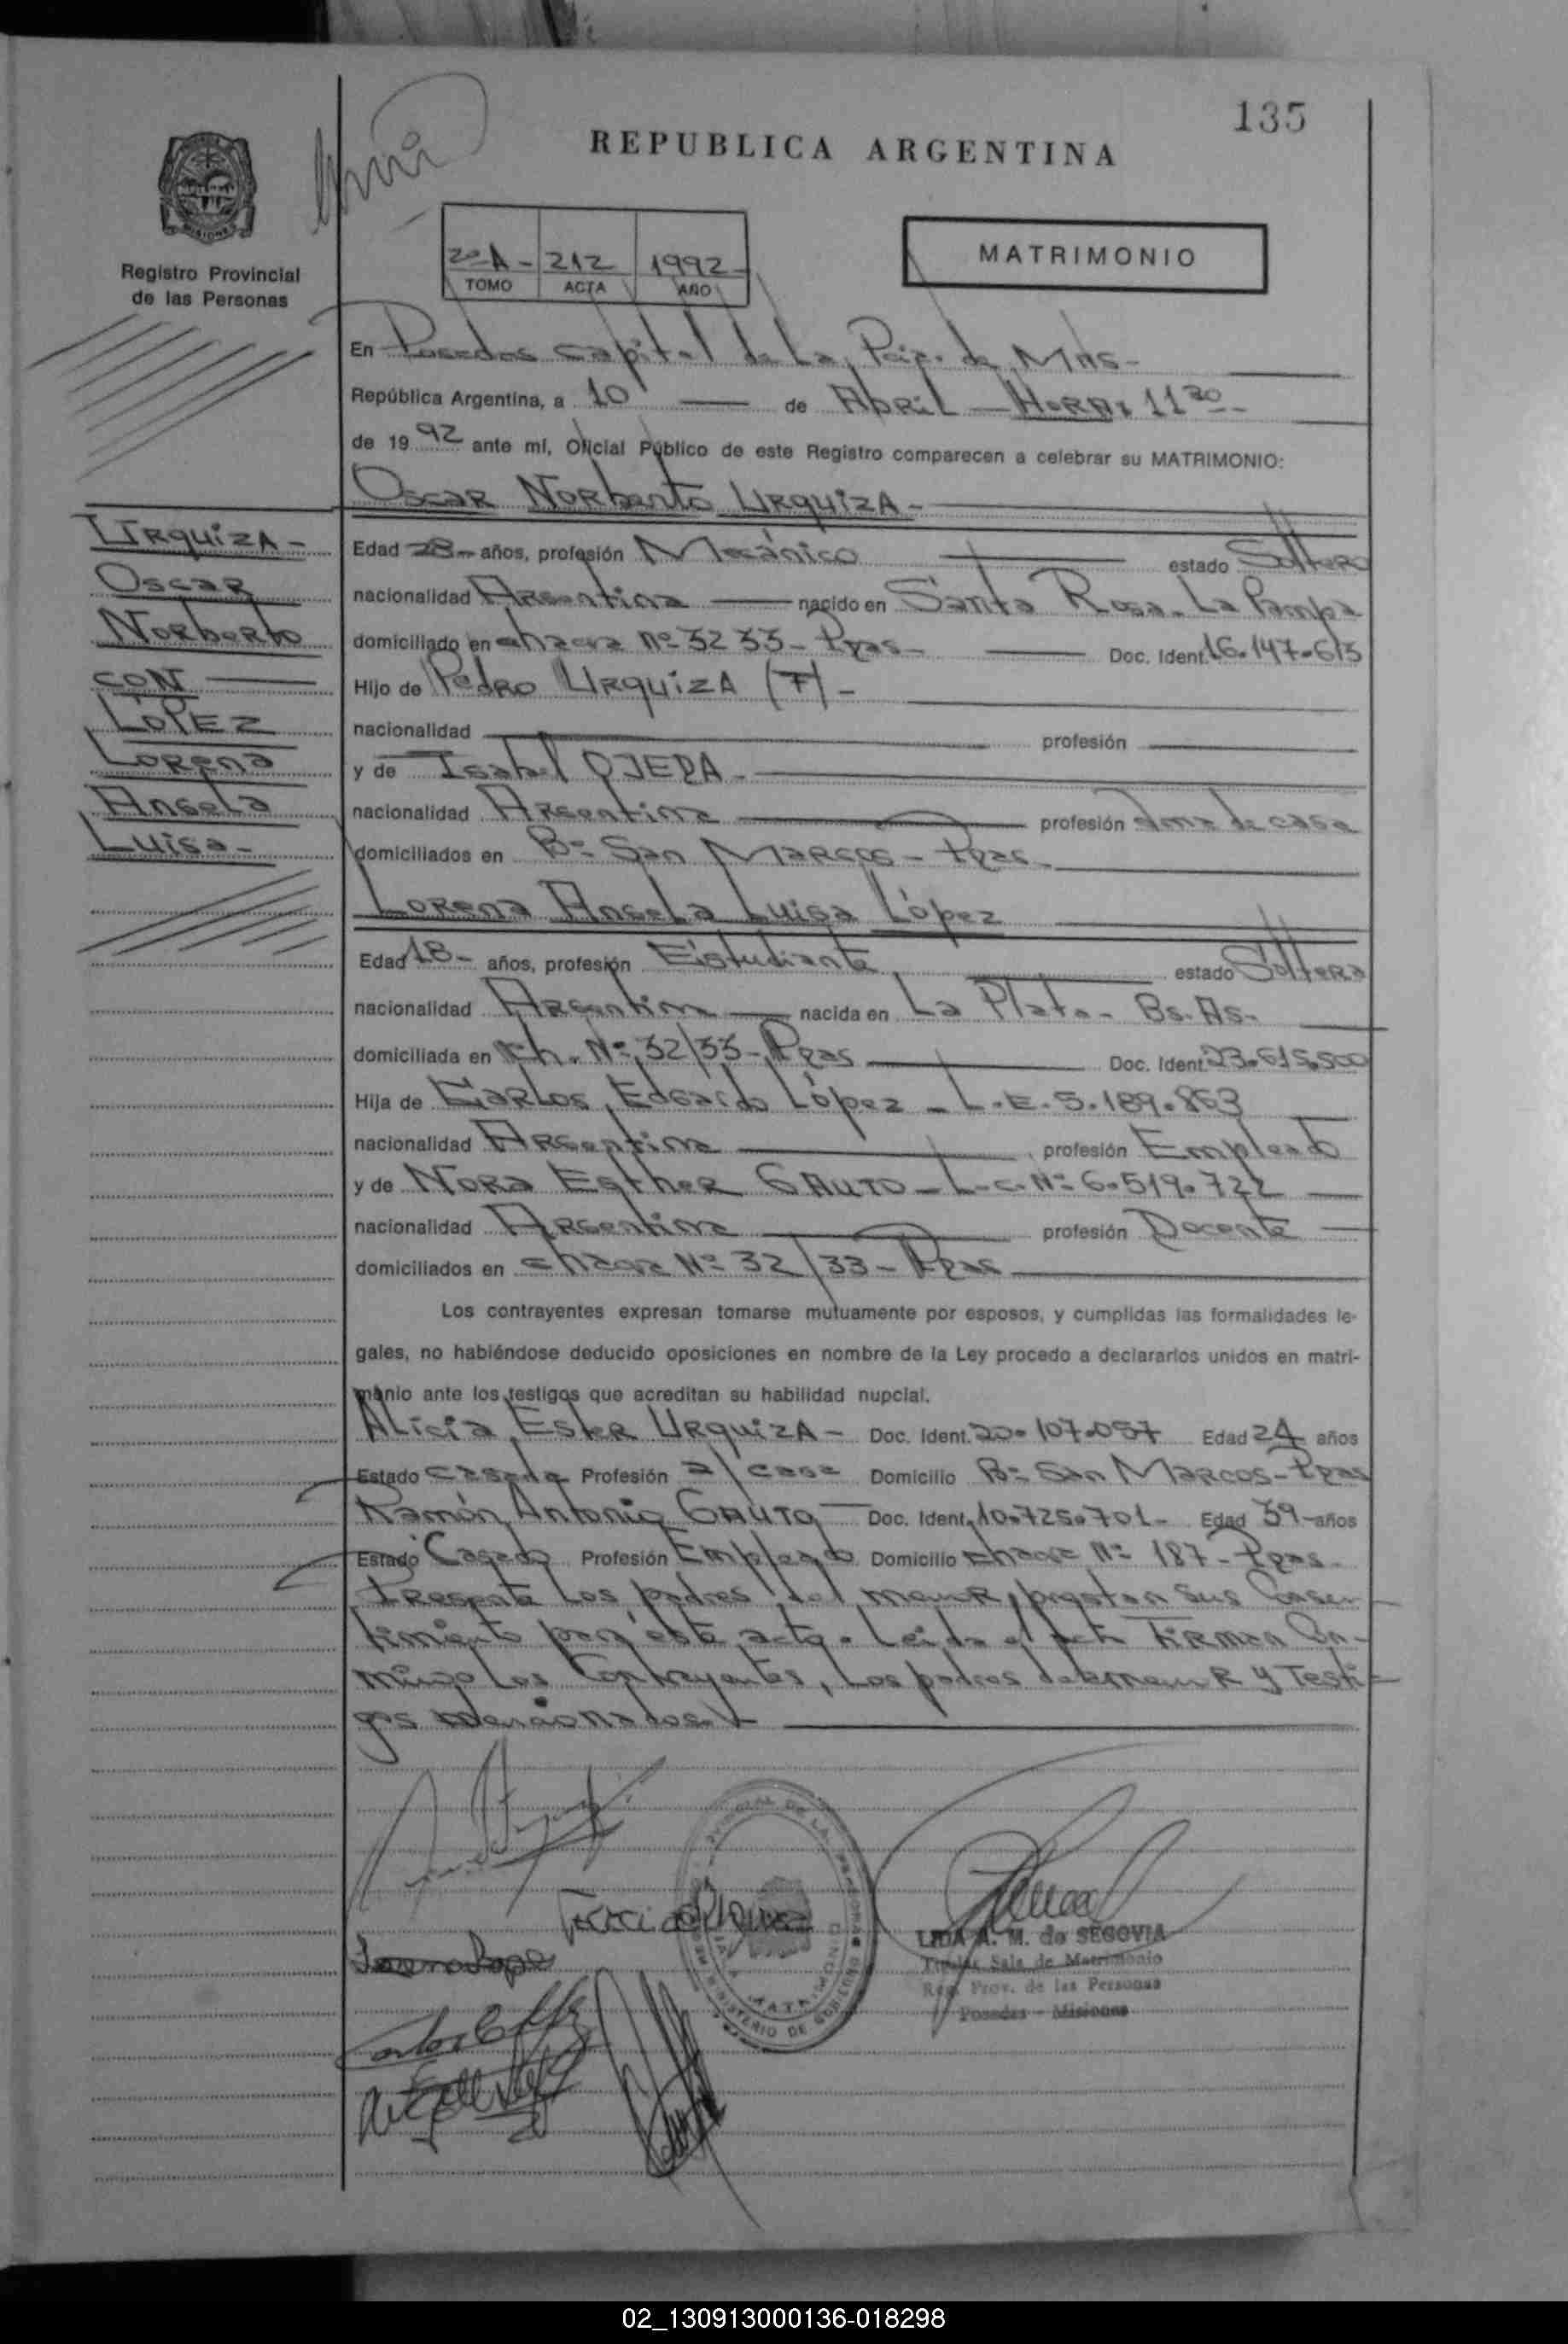 135
REPUBLICA ARGENTINA
MISIONES
Registro Provincial
de las Personas
2º A - 212 1992 -
TOMO ACTA AÑO
MATRIMONIO
En Posadas capital de La Pcia. de Mns -
República Argentina, a 10 de Abril - HORA: 11 30 -
de 19 92 ante mí, Oficial Público de este Registro comparecen a celebrar su MATRIMONIO:
Oscar Norberto Urquiza -
Urquiza -
Oscar
Norberto
CON
LóPEZ
Lorena
Angela
Luisa -
Edad 28 - años, profesión Mecánico estado Soltero
nacionalidad Argentina nacido en Santa Rosa - La Pampa
domiciliado en chacra Nº 32 33 - Pdas - Doc. Ident. 16.147.613
Hijo de Pedro Urquiza (F) -
nacionalidad profesión
y de Isabel OJEDA -
nacionalidad Argentina profesión ama de casa
domiciliados en Bº San Marcos - Pdas -
Lorena Angela Luisa López
Edad 18 - años, profesión Estudiante estado Soltera
nacionalidad Argentina nacida en La Plata - Bs. As -
domiciliada en Ch. Nº 32/33 - Pdas Doc. Ident. 23.615.500
Hija de Carlos Edgardo López - L.E. 5.189.863
nacionalidad Argentina profesión Empleado
y de Nora Esther GAUTO - L.C. Nº 6.519.722
nacionalidad Argentina profesión Docente
domiciliados en chacra Nº 32/33 - Pdas
Los contrayentes expresan tomarse mutuamente por esposos, y cumplidas las formalidades le-
gales, no habiéndose deducido oposiciones en nombre de la Ley procedo a declararlos unidos en matri-
monio ante los testigos que acreditan su habilidad nupcial.
Alicia Ester Urquiza - Doc. Ident. 20.107.057 Edad 24 años
Estado casada Profesión a/casa Domicilio Bº San Marcos - Pdas
Ramón Antonio GAUTO - Doc. Ident. 10.725.701 - Edad 39 - años
Estado Casado Profesión Empleado Domicilio chacra Nº 187 - Pdas -
Presente Los padres del menor, prestan sus Consen-
timiento para este acto. Leida el acta Firman Con-
migo Los Contrayentes, Los padres del menor y Testi-
gos Mencionados.
Lorena Lopez
LIDA A. M. de SEGOVIA
Titular Sala de Matrimonio
Reg. Prov. de las Personas
Posadas - Misiones
02_130913000136-018298